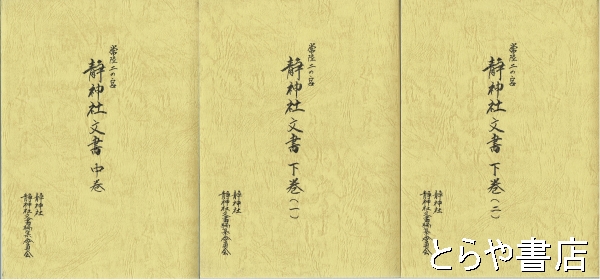 常陸二の宮
静神社文書 中巻
静神社
静神社文書編集委員会
常陸二の宮
静神社文書 下巻(一)
静神社
静神社文書編集委員会
常陸二の宮
静神社文書 下巻(二)
静神社
静神社文書編集委員会
とらや書店